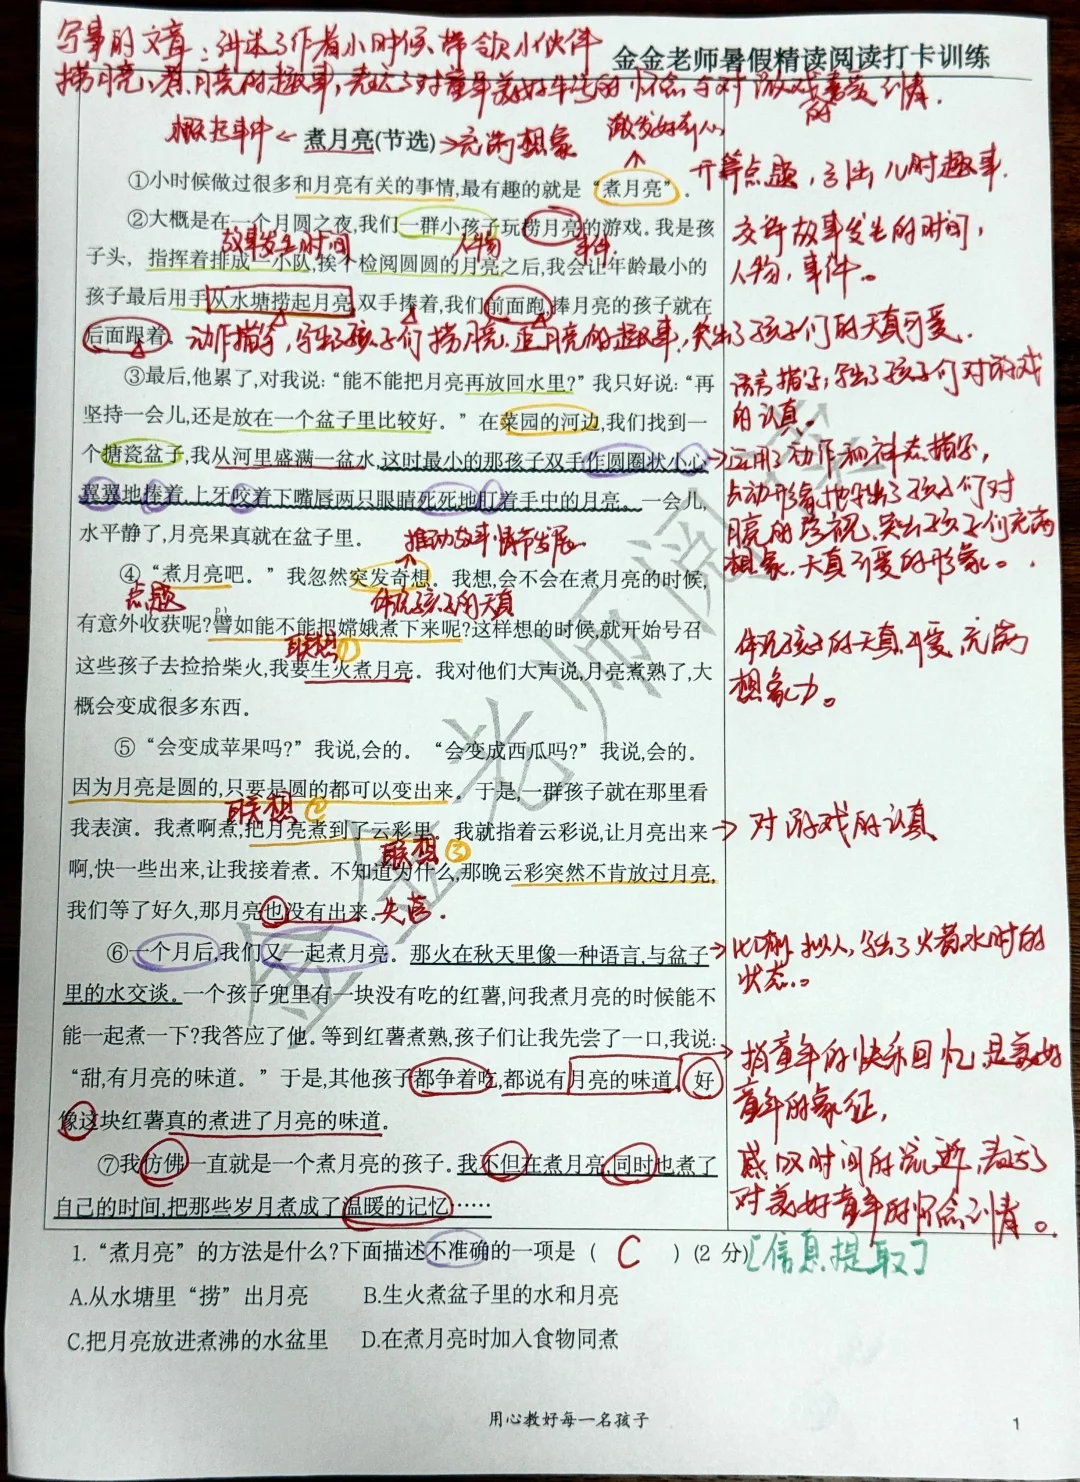 写事的文章：讲述了作者小时候带领小伙伴
金金老师暑假精读阅读打卡训练
捞月亮、煮月亮的趣事，表达了对童年美好生活的怀念与对游戏的喜爱之情.
概括事件 ← 煮月亮(节选) →充满想象
激发好奇心
①小时候做过很多和月亮有关的事情,最有趣的就是“煮月亮”.
开篇点题，引出儿时趣事.
②大概是在一个月圆之夜,我们一群小孩子玩捞月亮的游戏. 我是孩
交待故事发生的时间，
故事发生时间 人物 事件.
人物，事件。
子头， 指挥着排成一小队,挨个检阅圆圆的月亮之后,我会让年龄最小的
孩子最后用手从水塘捞起月亮,双手捧着,我们前面跑,捧月亮的孩子就在
后面跟着.
动作描写，写出了孩子们捞月亮、追月亮的趣事，突出了孩子们的天真可爱.
③最后,他累了,对我说:“能不能把月亮再放回水里?”我只好说:“再
语言描写,写出了孩子们对游戏
坚持一会儿,还是放在一个盆子里比较好。”在菜园的河边,我们找到一
的认真。
个搪瓷盆子,我从河里盛满一盆水,这时最小的那孩子双手作圆圈状小心
→运用了动作和神态描写，
翼翼地捧着,上牙咬着下嘴唇两只眼睛死死地盯着手中的月亮。一会儿,
生动形象地写出了孩子们对
水平静了,月亮果真就在盆子里.
月亮的珍视,突出孩子们充满
推动故事情节发展
想象、天真可爱的形象。
④“煮月亮吧。”我忽然突发奇想。我想,会不会在煮月亮的时候,
点题
体现孩子的天真
有意外收获呢?譬如能不能把嫦娥煮下来呢?这样想的时候,就开始号召
pì
联想①
体现孩子的天真可爱,充满
这些孩子去捡拾柴火,我要生火煮月亮。我对他们大声说,月亮煮熟了,大
想象力。
概会变成很多东西。
⑤“会变成苹果吗?”我说,会的。“会变成西瓜吗?”我说,会的。
因为月亮是圆的,只要是圆的都可以变出来。于是,一群孩子就在那里看
联想②
我表演。我煮啊煮,把月亮煮到了云彩里。我就指着云彩说,让月亮出来
→ 对游戏的认真
联想③
啊,快一些出来,让我接着煮。不知道为什么,那晚云彩突然不肯放过月亮,
我们等了好久,那月亮也没有出来。
失落.
⑥一个月后,我们又一起煮月亮。那火在秋天里像一种语言,与盆子
→比喻、拟人,写出了火苗、水时的
里的水交谈。一个孩子兜里有一块没有吃的红薯,问我煮月亮的时候能不
状态。
能一起煮一下?我答应了他。等到红薯煮熟,孩子们让我先尝了一口,我说:
“甜,有月亮的味道。”于是,其他孩子都争着吃,都说有月亮的味道,好
→指童年的快乐回忆,是美好
像这块红薯真的煮进了月亮的味道。
童年的象征，
⑦我仿佛一直就是一个煮月亮的孩子。我不但在煮月亮,同时也煮了
感叹时间的流逝,表达了
自己的时间,把那些岁月煮成了温暖的记忆……
对美好童年的怀念之情。
1.“煮月亮”的方法是什么?下面描述不准确的一项是 ( C ) (2 分)[信息提取]
A.从水塘里“捞”出月亮 B.生火煮盆子里的水和月亮
C.把月亮放进煮沸的水盆里 D.在煮月亮时加入食物同煮
用心教好每一名孩子
1
金金老师阅读